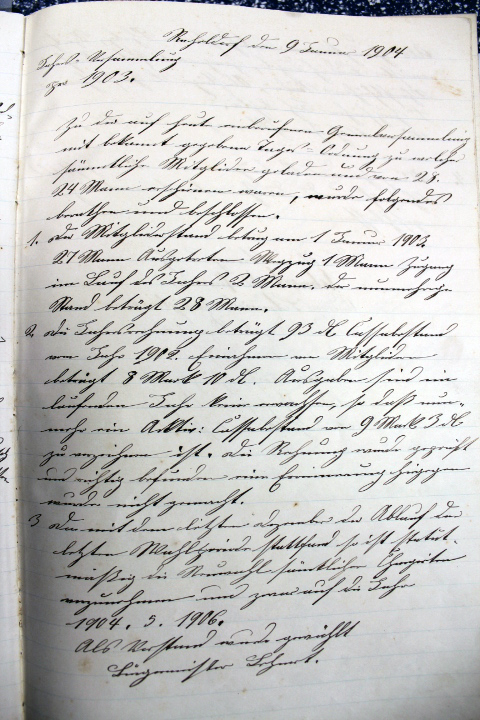 den 9 Januar 1904
Jahres-Versammlung
pro 1903.
Zu der auf heute einberufenen Generalversammlung
mit bekannt gegebener Tages-Ordnung zu welcher
sämmtliche Mitglieder geladen und von 28
24 Mann erschienen waren, wurde folgendes
berathen und beschlossen.
1. Der Mitgliederstand betrug am 1 Januar 1903
27 Mann Ausgetreten Wegzug 1 Mann Zugang
im Lauf des Jahres 2 Mann, der nunmehrige
Stand beträgt 28 Mann.
2. Die Jahresrechnung beträgt 93 d Cassabestand
vom Jahr 1902. Einnahmen von Mitglieder
beträgt 8 Mark 10 d. Ausgaben sind im
laufenden Jahr keine erwachsen, so daß nun-
mehr ein Aktiv: Cassabestand von 9 Mark 3 d
zu verzeichnen ist. Die Rechnung wurde geprüft
und richtig befunden eine Erinnerung hiegegen
wurde nicht gemacht.
3 Da mit dem letzten Dezember der Ablauf der
letzten Wahlperiode stattfand so ist statut-
mäßig die Neuwahl sämtlicher Chargirten
vorzunehmen und zwar auf die Jahre
1904. 5. 1906.
Als Vorstand wurde gewählt
Bürgermeister